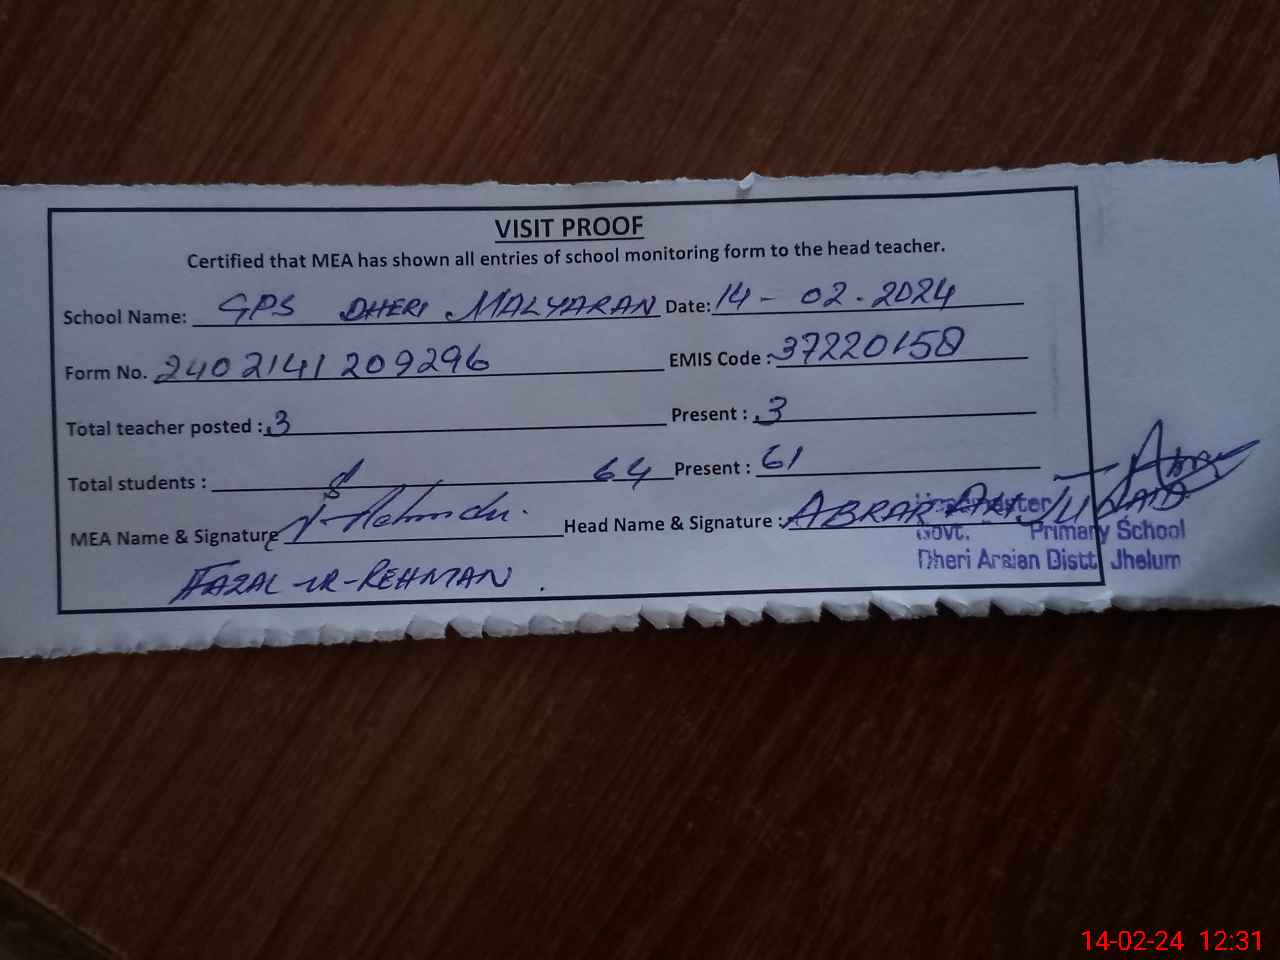 VISIT PROOF
Certified that MEA has shown all entries of school monitoring form to the head teacher.
School Name: GPS DHERI MALYARAN Date: 14-02-2024
Form No. 2402141209296 EMIS Code : 37220158
Total teacher posted : 3 Present : 3
Total students : 64 Present : 61
MEA Name & Signature Head Name & Signature : ABRAR
FAZAL-UR-REHMAN.
Headmaster
Govt. Primary School
Dheri Araian Distt Jhelum
14-02-24 12:31